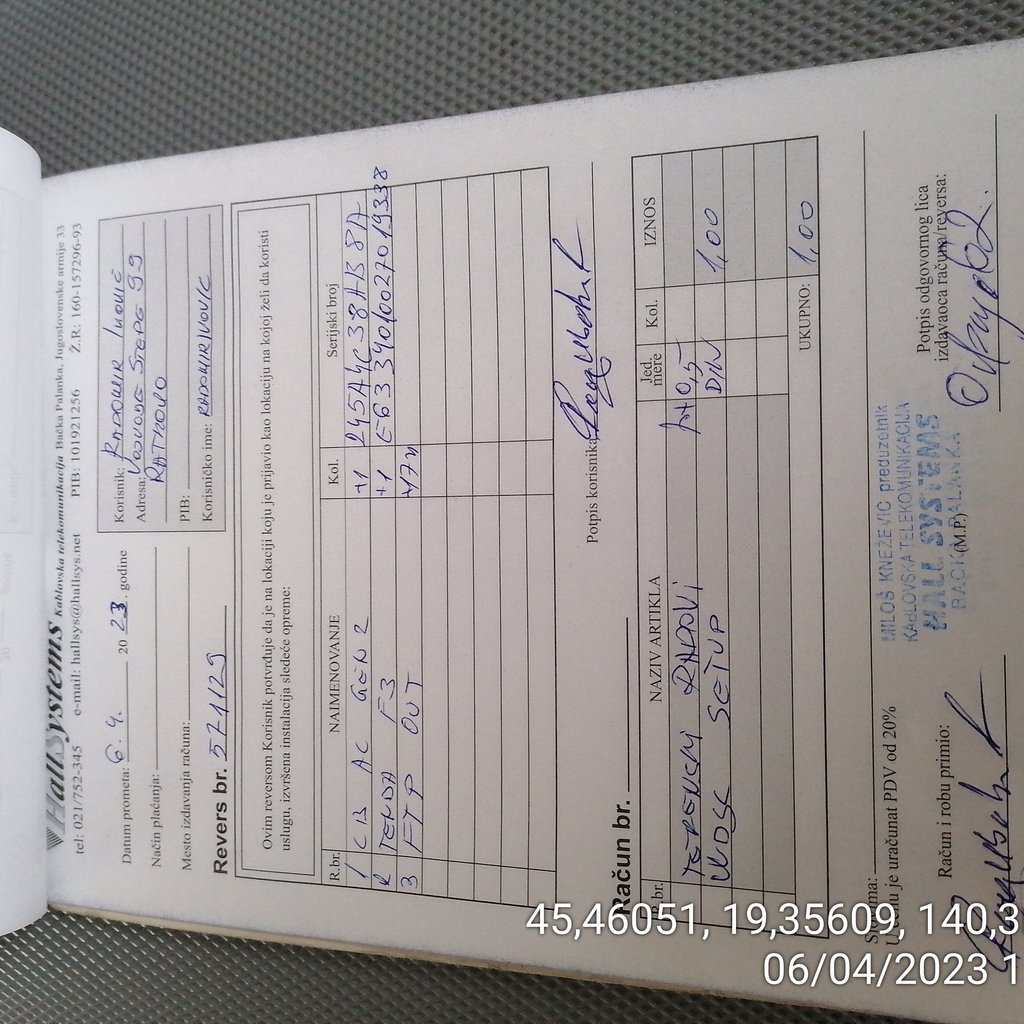 HallSystems Kablovska telekomunikacija Bačka Palanka, Jugoslovenske armije 33
tel: 021/752-345 e-mail: hallsys@hallsys.net PIB: 101921256 Ž.R: 160-157296-93
Datum prometa: 6.4. 2023. godine
Način plaćanja:
Mesto izdavanja računa:
Revers br. 571129
Korisnik: RADOMIR IVOVIĆ
Adresa: VOJVODE STEPE 99
RATKOVO
PIB:
Korisničko ime: RADOMIRIVOVIC
Ovim reversom Korisnik potvrđuje da je na lokaciji koju je prijavio kao lokaciju na kojoj želi da koristi
uslugu, izvršena instalacija sledeće opreme:
R.br. NAIMENOVANJE Kol. Serijski broj
1 LB AC GEN 2 +1 245A4C38AB8A
2 TENDA F3 +1 E6334010027019338
3 FTP OUT +7m
Potpis korisnika
Račun br.
R.br. NAZIV ARTIKLA Jed. mere Kol. IZNOS
TERENSKI RADOVI 1+0,5
WDSL SETUP DIN 1,00
UKUPNO: 1,00
Slovima:
U cenu je uračunat PDV od 20%
Račun i robu primio:
MILOŠ KNEŽEVIĆ preduzetnik
KABLOVSKA TELEKOMUNIKACIJA
HALL SYSTEMS
BAČKA PALANKA
(M.P.)
Potpis odgovornog lica
izdavaoca računa/reversa:
45,46051, 19,35609, 140,3
06/04/2023 1